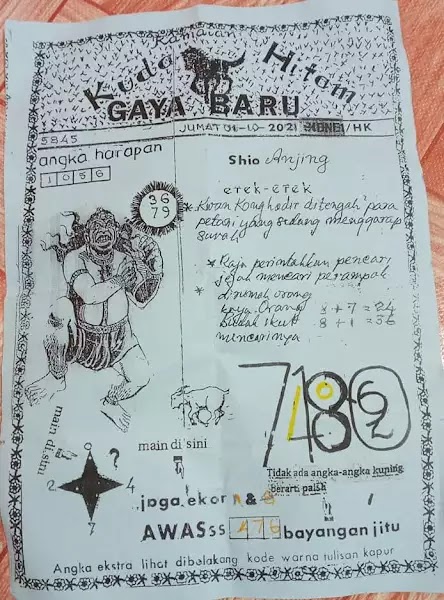 Ramalan
Kuda Hitam
GAYA BARU
5845
JUMAT 01-10-2021 /HK
angka harapan
1056
Shio Anjing
36
79
erek-erek
* Kwan Kong hadir ditengah para
petani yang sedang menggarap
sawah
* Raja perintahkan pencari
jejak mencari perampok
dirumah orang
kaya. Orang
ikut
mencarinya
8+7=24
8+1=36
main disini
0
?
2
4
7
main disini
Tidak ada angka-angka kuning
berarti palsu
joga ekor &
AWASss 476 bayangan jitu
Angka ekstra lihat dibelakang kode warna tulisan kapur